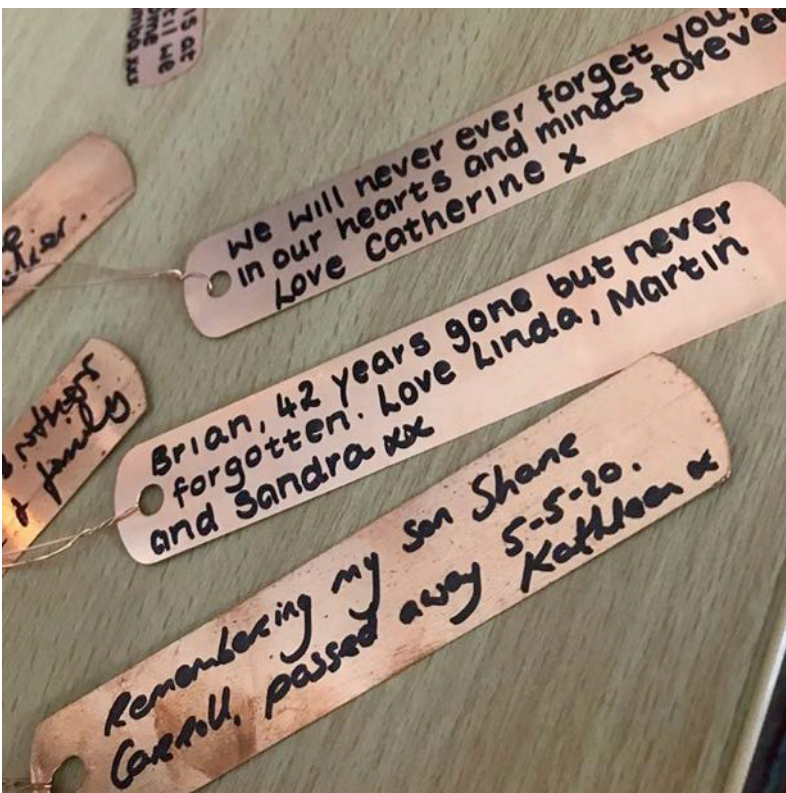 is at
til we
ome
mba xxx
We will never ever forget you,
in our hearts and minds forever
Love Catherine x
Brian, 42 years gone but never
forgotten. Love Linda, Martin
and Sandra xx
& family
Remembering my son Shane
Carroll, passed away 5-5-20.
Kathleen x